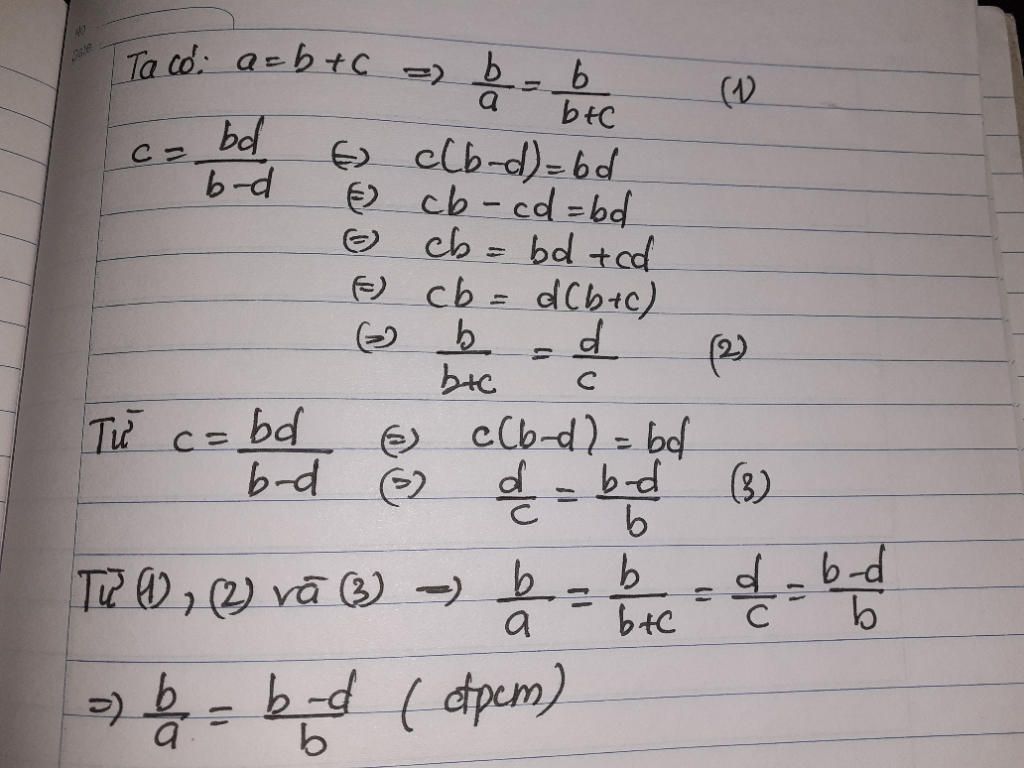 No
Date
Ta có: a = b + c => b/a = b/(b+c) (1)
c = bd/(b-d) <=> c(b-d) = bd
<=> cb - cd = bd
<=> cb = bd + cd
<=> cb = d(b+c)
<=> b/(b+c) = d/c (2)
Từ c = bd/(b-d) <=> c(b-d) = bd
<=> d/c = (b-d)/b (3)
Từ (1), (2) và (3) => b/a = b/(b+c) = d/c = (b-d)/b
=> b/a = (b-d)/b (đpcm)